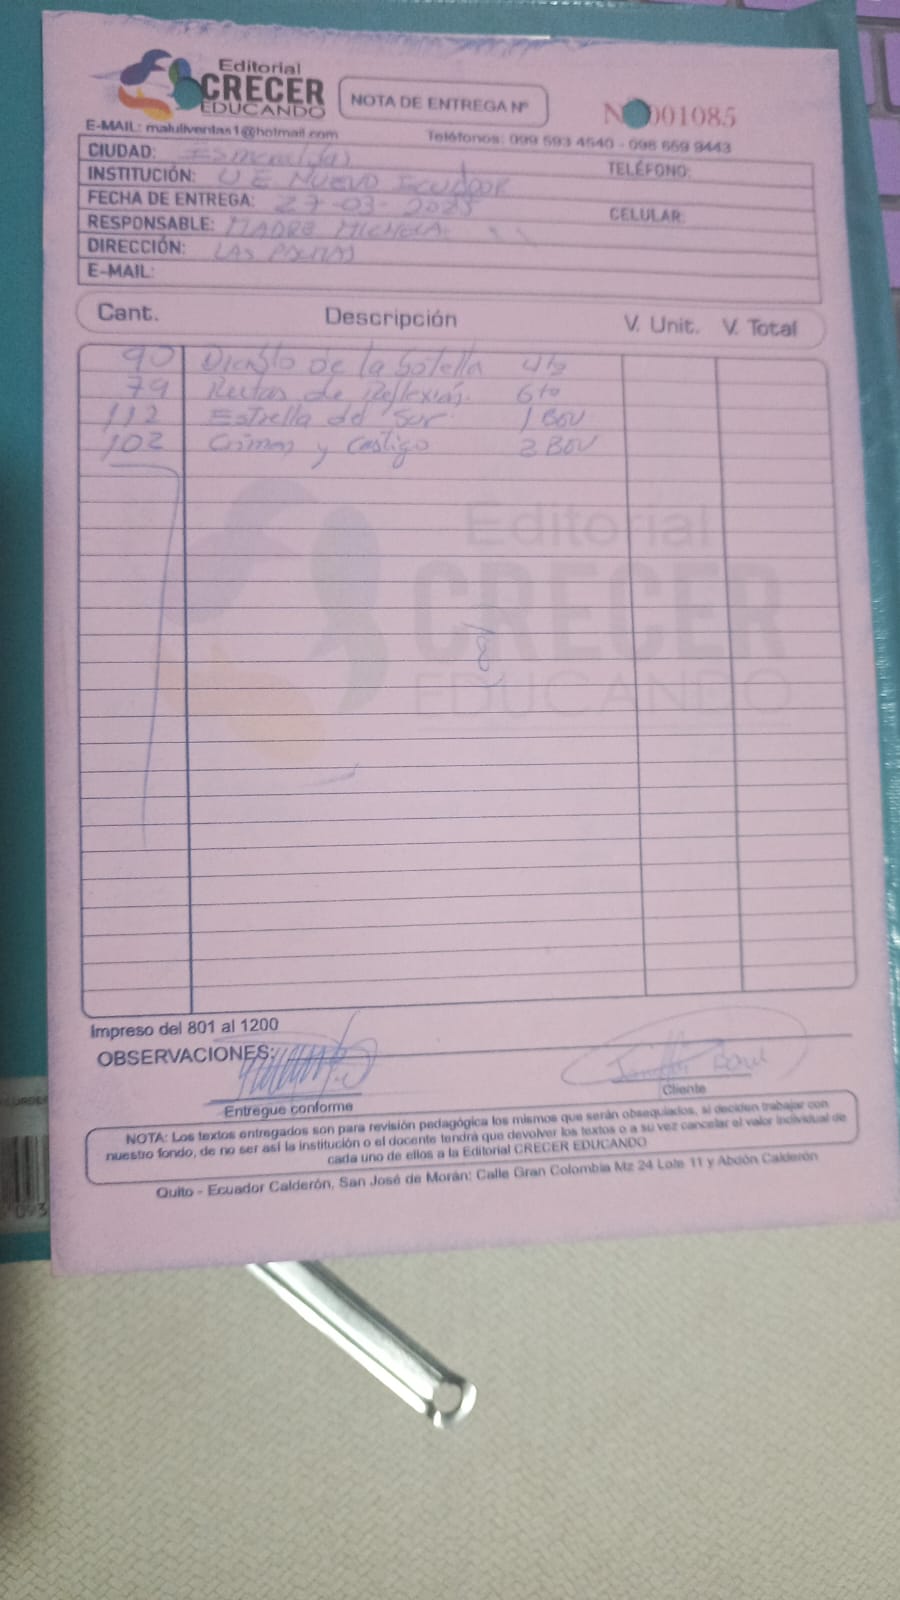 Editorial
CRECER
EDUCANDO
NOTA DE ENTREGA Nº
001085
E-MAIL: maluliventas1@hotmail.com
Teléfonos: 099 593 4540 - 098 659 9443
CIUDAD: Esmeraldas
TELÉFONO:
INSTITUCIÓN: U E NUEVO ECUADOR
FECHA DE ENTREGA: 27-03-2025
CELULAR:
RESPONSABLE: MADRE MICHELA
DIRECCIÓN: LAS PALMAS
E-MAIL:
Cant. Descripción V. Unit. V. Total
90 Diablo de la botella 4to
79 de Reflexión 6to
112 Estrella del Sur 1 BGU
102 Crimen y Castigo 3 BGU
Editorial
CRECER
EDUCANDO
Impreso del 801 al 1200
OBSERVACIONES:
Entregue conforme
Cliente
NOTA: Los textos entregados son para revisión pedagógica los mismos que serán obsequiados, si deciden trabajar con
nuestro fondo, de no ser así la institución o el docente tendrá que devolver los textos o a su vez cancelar el valor individual de
cada uno de ellos a la Editorial CRECER EDUCANDO
Quito - Ecuador Calderón, San José de Morán: Calle Gran Colombia Mz 24 Lote 11 y Abdón Calderón